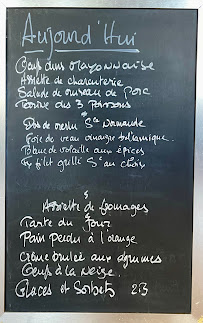 Aujourd'Hui
Oeufs durs Mayonnaise
Assiette de charcuterie
Salade de museau de Porc
Terrine des 3 Poissons
Dos de merlu Sce Normande
Foie de veau vinaigre balsamique
Blanc de volaille aux épices
filet grillé Sce au choix
Assiette de fromages
Tarte du Jour
Pain Perdu à l'orange
Crème brulée aux agrumes
Oeufs à la Neige
Glaces et Sorbets 2B